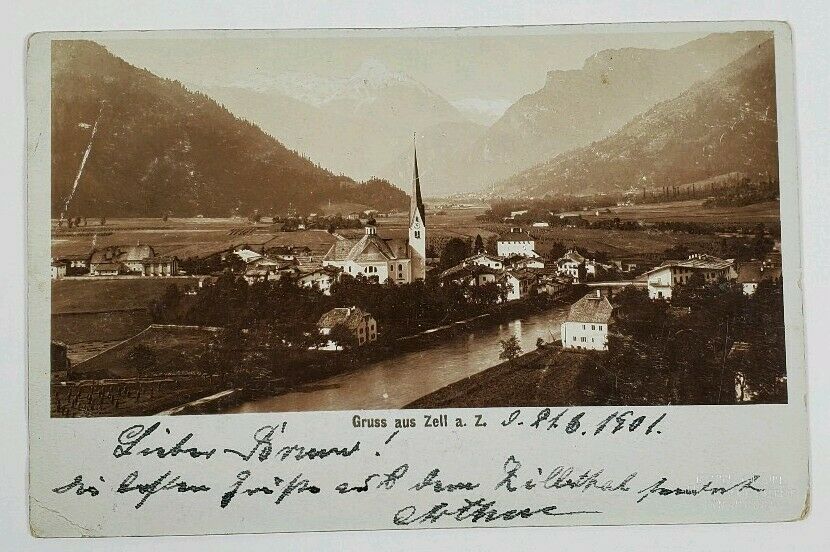 Gruss aus Zell a. Z. d. 21.6.1901.
Lieber Bruno!
die besten Grüße aus dem Zillerthal sendet
Arthur